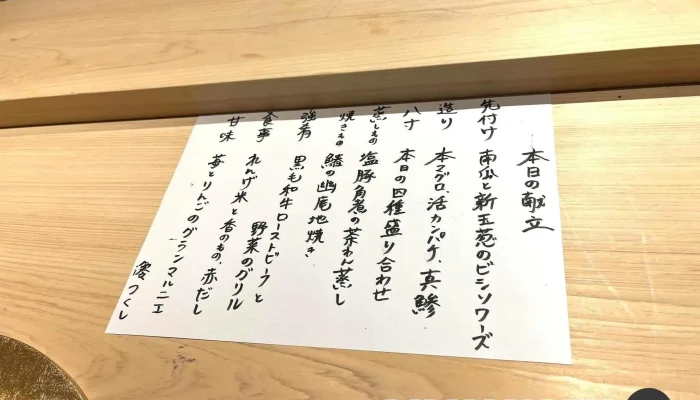 本日の献立
先付け 南瓜と新玉葱のビシソワーズ
造り 本マグロ、活カンパチ、真鯵
八寸 本日の四種盛り合わせ
蒸しもの 塩豚角煮の茶わん蒸し
焼きもの 鰆の幽庵地焼き
強肴 黒毛和牛ローストビーフと
野菜のグリル
食事 れんげ米と香のもの、赤だし
甘味 苺とりんごのグランマルニエ
澪つくし